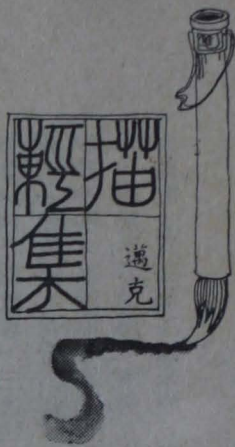 描輕
集
邁克